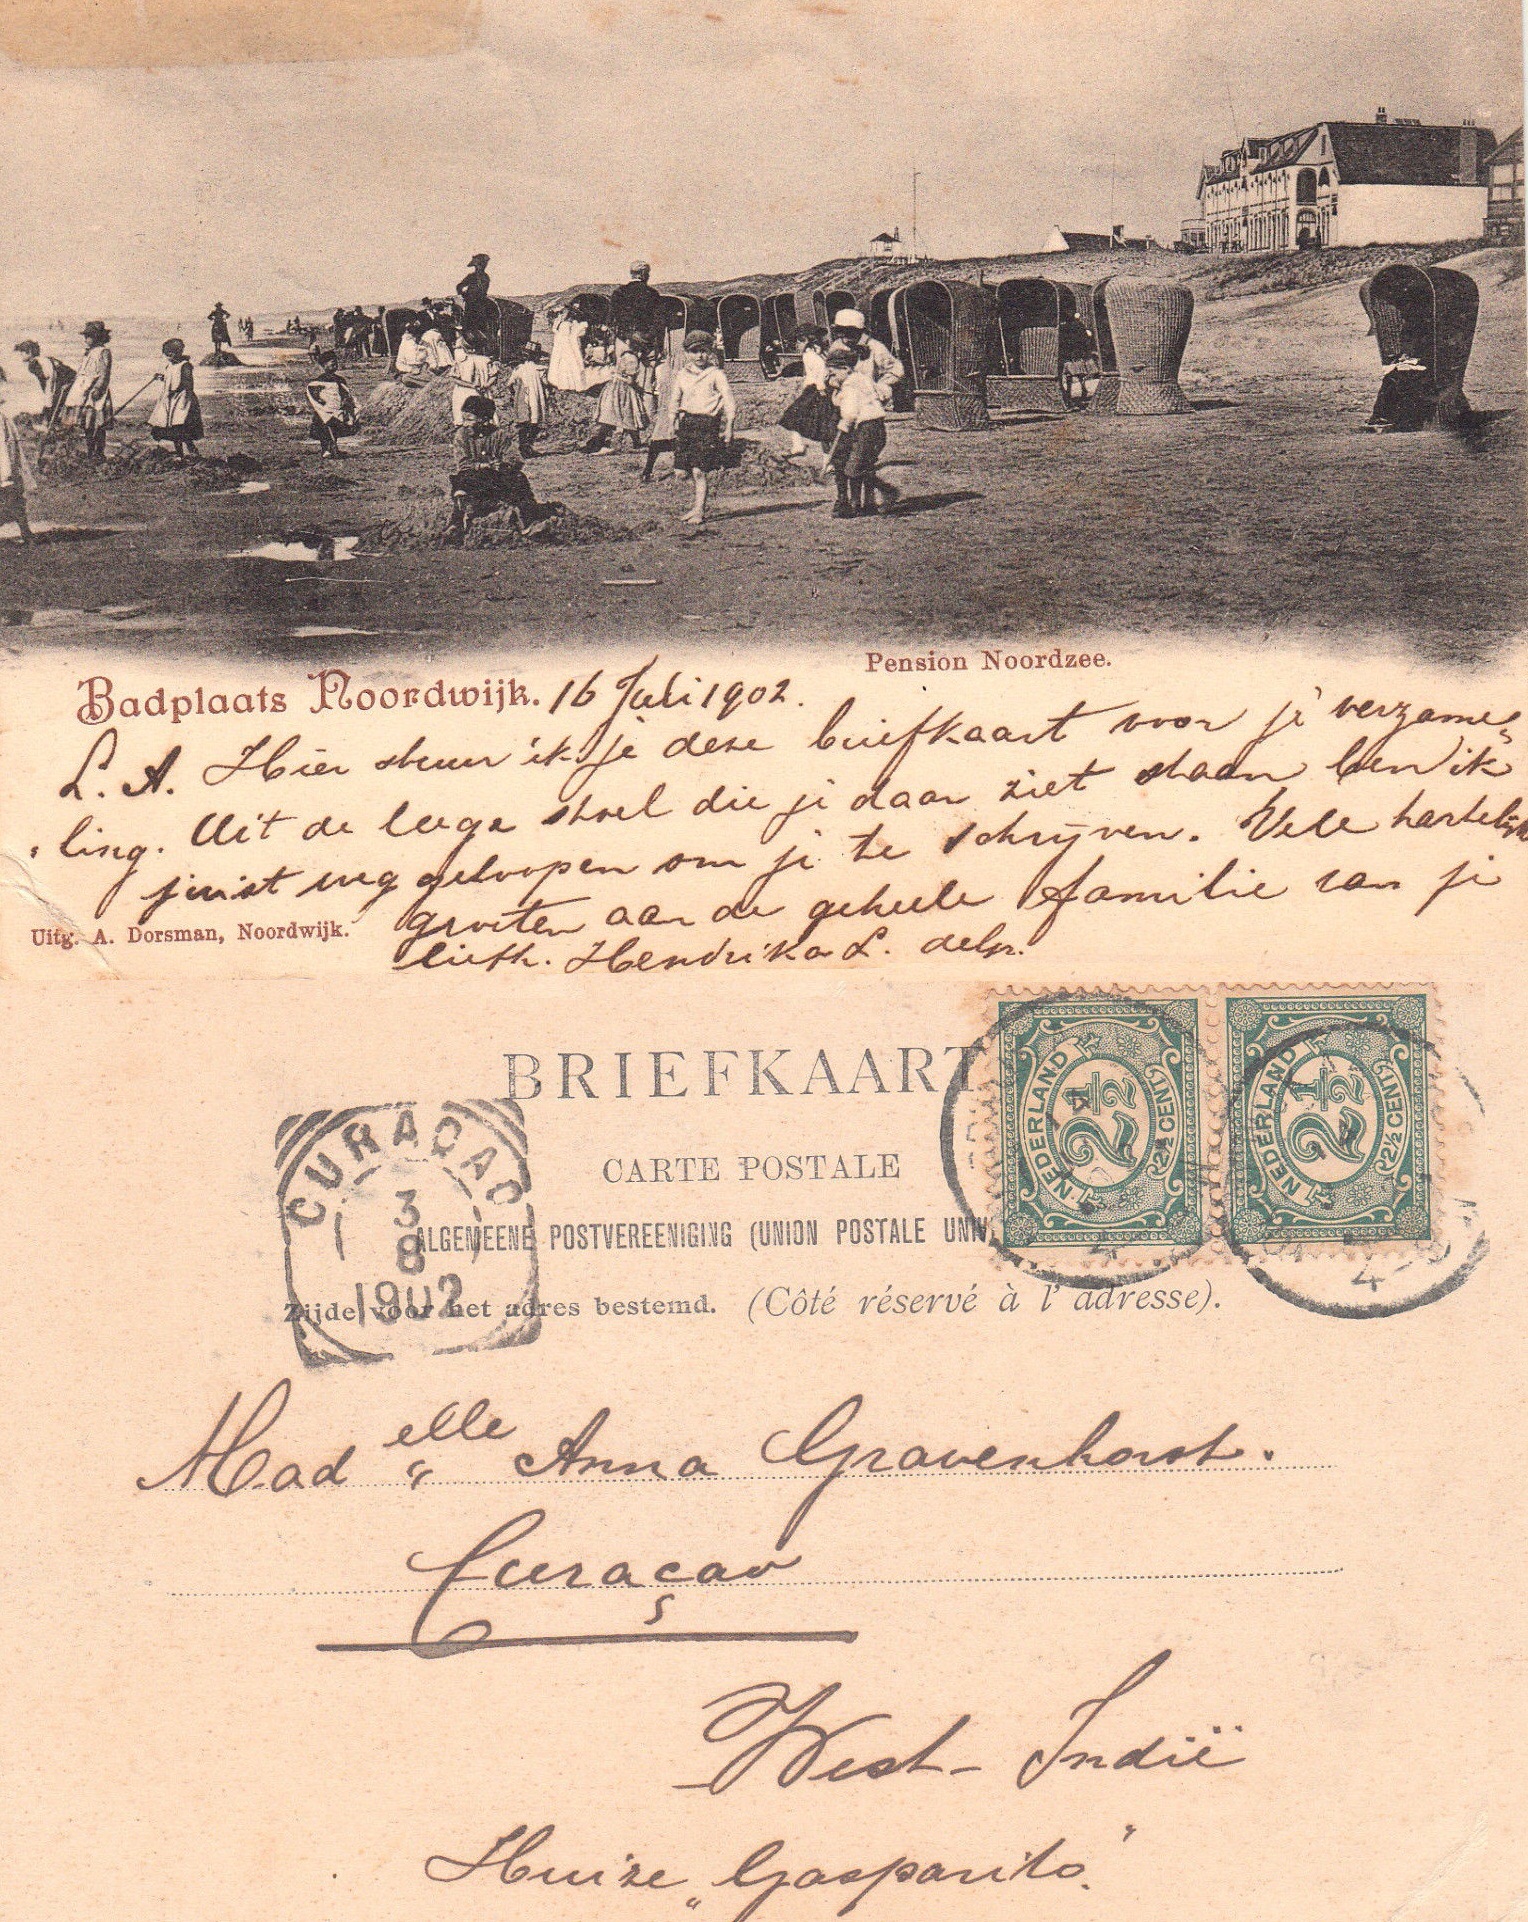 Pension Noordzee.
Badplaats Noordwijk. 16 Juli 1902.
L. A. Hier stuur ik je deze briefkaart voor je verzame„
„ling. Uit de leege stoel die je daar ziet staan ben ik
juist weg geloopen om je te schrijven. Vele hartelijke
groeten aan de geheele familie van je
Uitg. A. Dorsman, Noordwijk.
liefh. Hendrika L.
BRIEFKAART
CARTE POSTALE
ALGEMEENE POSTVEREENIGING (UNION POSTALE UNIV
Zijde voor het adres bestemd. (Côté réservé à l'adresse).
CURAÇAO
3
8
1902
NEDERLAND
2½
2½ CENT
NEDERLAND
2½
2½ CENT
4
4
Mad elle Anna Gravenhorst.
Curaçao
West-Indië
Huize „Gasparito"